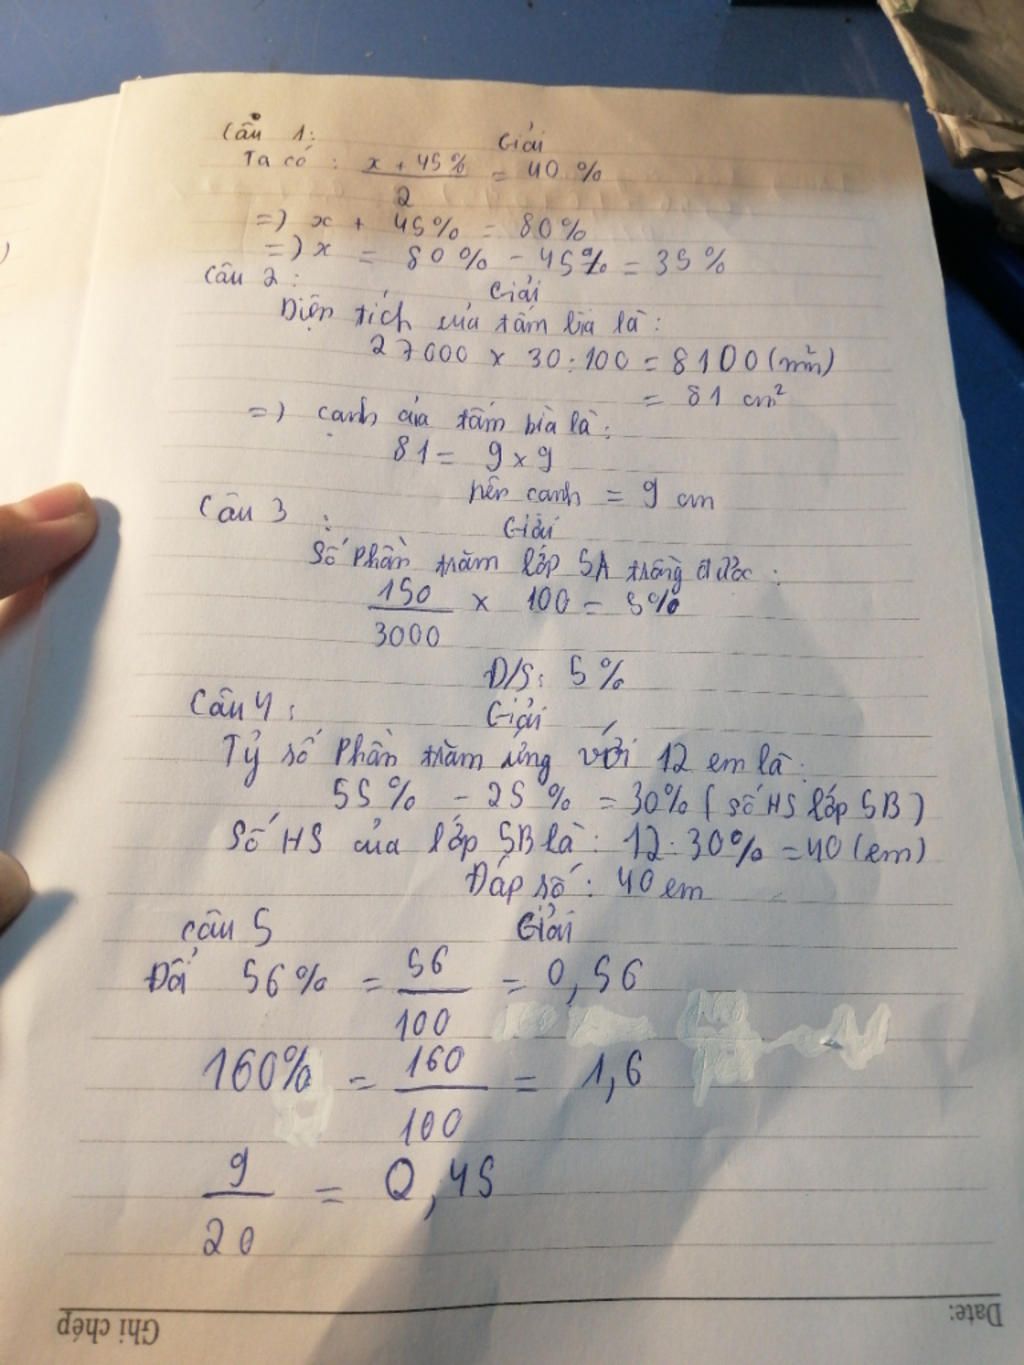 Câu 1: Giải
Ta có : x + 45% / 2 = 40 %
=> x + 45% = 80%
=> x = 80% - 45% = 35%
Câu 2: Giải
Diện tích của tấm bìa là:
27000 x 30 : 100 = 8100 (mm²)
= 81 cm²
=> cạnh của tấm bìa là:
81 = 9 x 9
nên cạnh = 9 cm
Câu 3 : Giải
Số phần trăm lớp 5A trồng được:
150 / 3000 x 100 = 5%
Đ/S: 5%
Câu 4 : Giải
Tỷ số phần trăm ứng với 12 em là:
55% - 25% = 30% (số HS lớp 5B)
Số HS của lớp 5B là: 12 : 30% = 40 (em)
Đáp số: 40 em
Câu 5 Giải
Đổi 56% = 56 / 100 = 0,56
160% = 160 / 100 = 1,6
9 / 20 = 0,45
Ghi chép
Date: